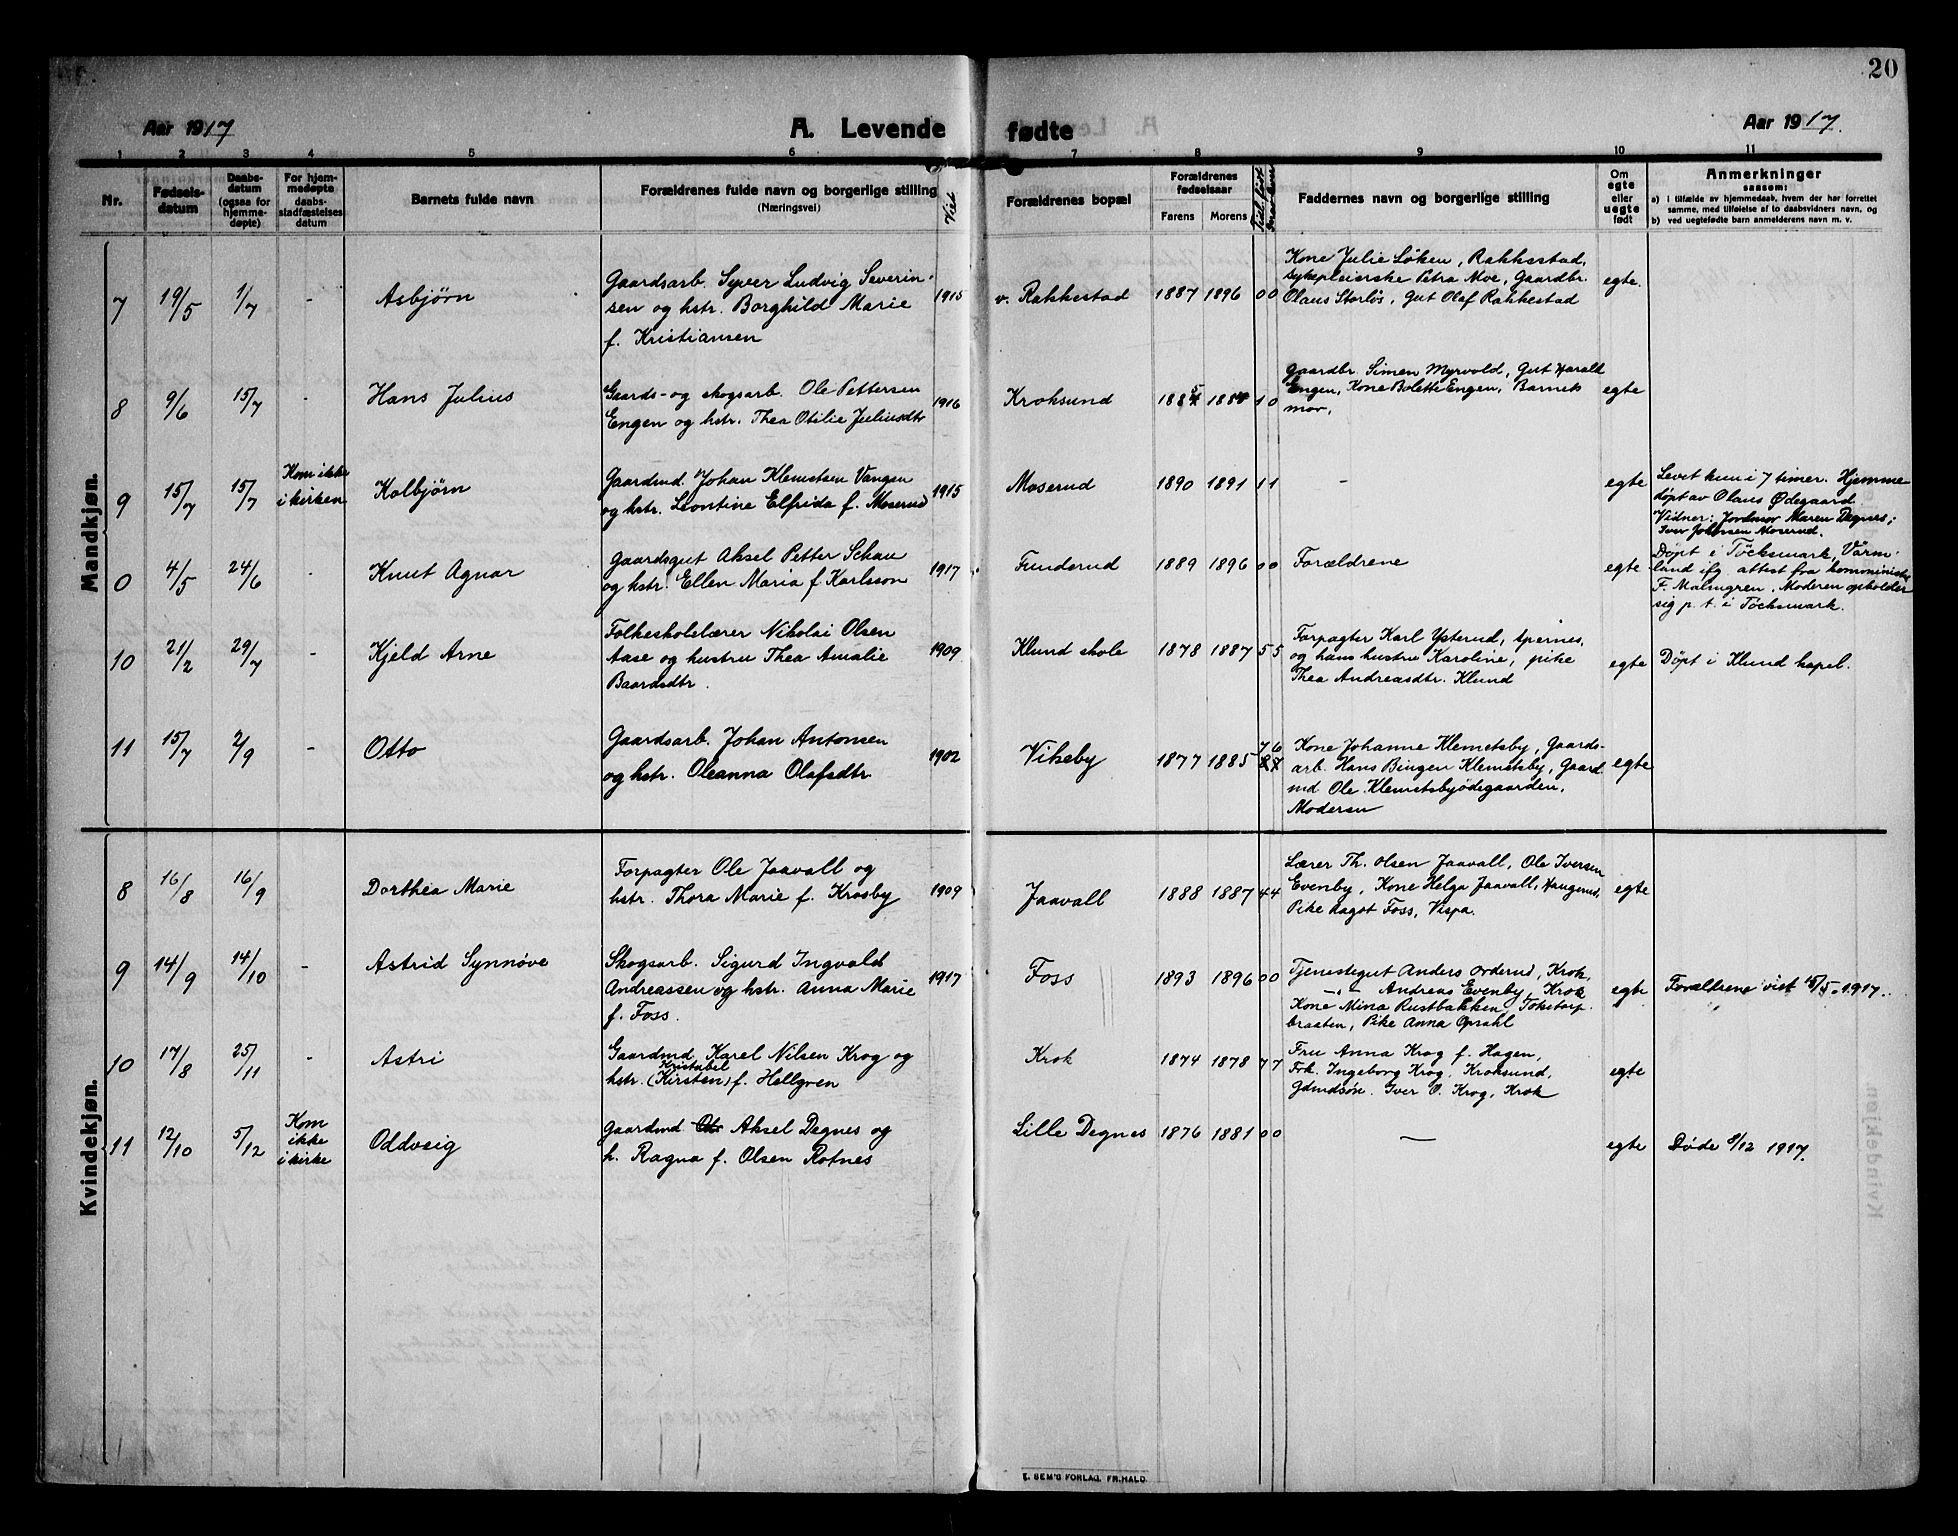 20
Aar 1917
A. Levende
fødte
Aar 1917.
1 2 3 4 5 6 7 8 9 10 11
Nr.
Fødsels-
datum
Daabs-
datum
(ogsaa for
hjemme-
døpte)
For hjem-
medøpte
daabs-
stadfæstelses
datum
Barnets fulde navn
Forældrenes fulde navn og borgerlige stilling
(Næringsvei)
Viet
Forældrenes bopæl
Forældrenes
fødselsaar
Farens
Morens
Faddernes navn og borgerlige stilling
Om
egte
eller
uegte
født
Anmerkninger
saasom:
a) i tilfælde av hjemmedaab, hvem der har forrettet
samme, med tilføielse af to daabsvidners navn, og
b) ved uegtefødte barn anmelderens navn m. v.
Mandkjøn.
7 19/5 1/7 - Asbjørn
Gaardsarb. Syver Ludvig Severin-
sen og hstr. Borghild Marie
f. Kristiansen
1915
v. Rakkestad 1887 1896 0 0
Kone Julie Løken, Rakkestad,
sykepleierske Petra Moe, Gaardbr.
Olaus Storløs, Gut Olaf Rakkestad
egte.
8 9/6 15/7 - Hans Julius
Gaards- og skogsarb. Ole Pettersen
Engen og hstr. Thea Otilie Juliusdtr
1916
Kroksund 1 0
Gaardbr. Simen Myrvold, Gut Harald
Engen, Kone Bolette Engen, Barnets
mor,
egte
9 15/7 15/7
Kom ikke
i kirken
Kolbjørn
Gaardmd. Johan Klemetsen Vangen
og hstr. Leontine Elfrida f. Moserud
1915
Moserud 1890 1891 1 1
-
egte
Levet kun i 7 timer. Hjemme
døpt av Olaus Ødegaard.
Vidner: Jordmor Maren Degnes;
Iver Johansen Moserud.
0 4/5 24/6 - Knut Agnar
Gaardsgut Aksel Petter Schau
og hstr. Ellen Maria f. Karlsson
1917
Funderud 1889 1896 0 0
Forældrene
egte
Døpt i Töcksmark, Värm-
land ifg. attest fra komminister
F. Malmgren. Moderen opholder
sig p. t. i Töcksmark.
10 21/2 29/7 - Kjeld Arne
Folkeskolelærer Nikolai Olsen
Aase og hustru Thea Amalie
Baardsdtr.
1909
Klund skole 1878 1887 5 5
Forpagter Karl Ysterud, Spernes,
og hans hustru Karoline, pike
Thea Andreasdtr. Klund
egte
Døpt i Klund kapel.
11 15/7 2/9 - Otto
Gaardsarb. Johan Antonsen
og hstr. Oleanna Olafsdtr.
1902
Vikeby 1877 1885 7 6
8 7
Kone Johanne Klemetsby, Gaards-
arb. Hans Bingen Klemetsby, Gaard
md Ole Klemetsbyødegaarden,
Moderen
egte
Kvindekjøn.
8 16/8 16/9 Dorthea Marie
Forpagter Ole Jaavall og
hstr. Thora Marie f. Krosby
1909
Jaavall 1888 1887 4 4
Lærer Th. Olsen Jaavall, Ole Iversen
Evenby, Kone Helga Jaavall, Haugerud,
Pike Ragot Foss, Vispa.
egte
9 14/9 14/10 - Astrid Synnøve
Skogsarb. Sigurd Ingvald
Andreassen og hstr. Anna Marie
f. Foss.
1917
Foss 1893 1896 0 0
Tjenestegut Anders Orderud, Krok,
-"- Andreas Evenby, Krok
Kone Mina Rustbakken Toketorp
braaten, Pike Anna Opsahl
egte
Forældrene viet 15/5 1917.
10 17/8 25/11 - Astri
Gaardmd Karel Nilsen Krog og
Kristabel
hstr. (Kirsten) f. Hellgren
Krok 1874 1878 7 7
Fru Anna Krog f. Hagen,
Frk. Ingeborg Krog, Kroksund,
Gdmdsøn. Iver O. Krog, Krok
egte
11 12/10 5/12
Kom
ikke
i kirke
Oddveig
Gaardmd Ole Aksel Degnes og
h. Ragna f. Olsen Rotnes
Lille Degnes 1876 1881 0 0
-
egte
Døde 8/12 1917.
E. SEM'S FORLAG. FR.HALD.